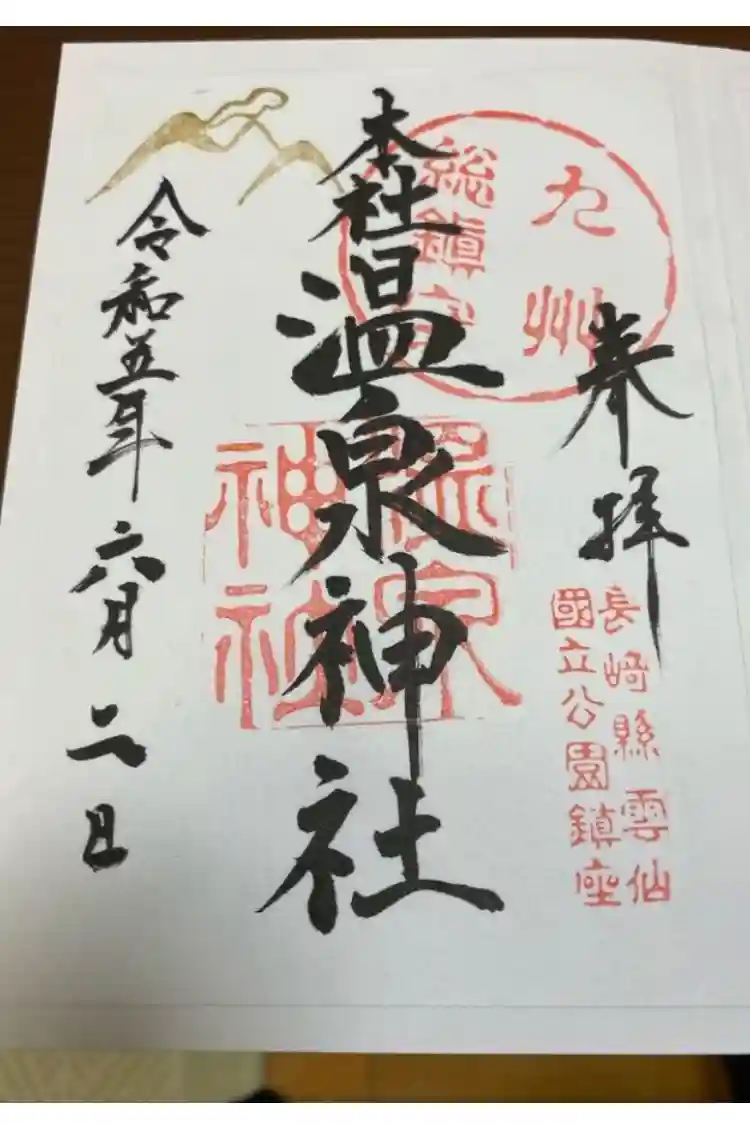 奉拝
長崎縣雲仙
國立公園鎮座
九州
総鎮守
本社
温泉神社
温泉
神社
令和五年六月二日